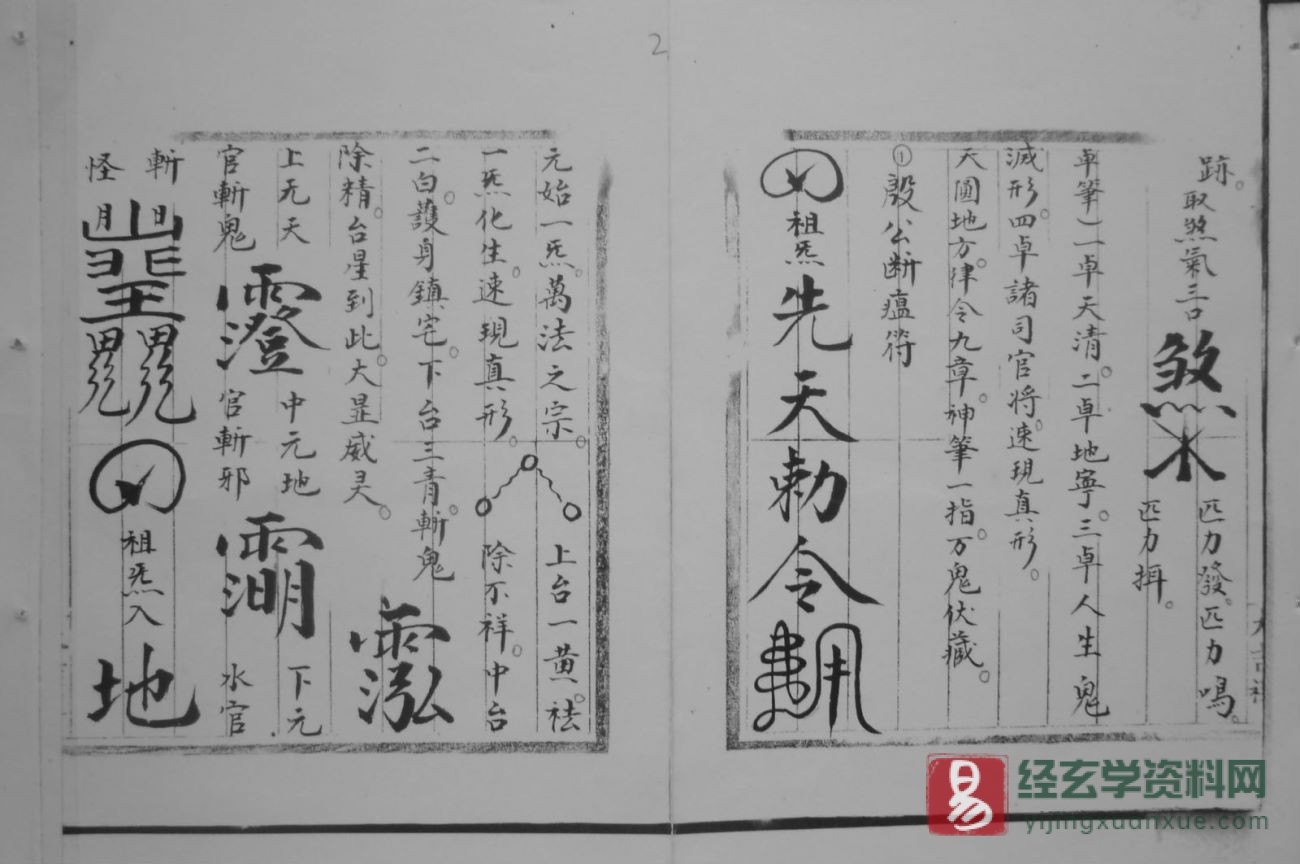 2
跡。取煞氣三口
煞
匹力發。匹力鳴。
匹力揖。
卓筆）一卓天清。二卓地寧。三卓人生鬼
滅形。四卓諸司官將。速現真形。
天圓地方。律令九章。神筆一指。万鬼伏藏。
①殷公断瘟符
祖炁 先天勅令
元始一炁。萬法之宗。 上台一黄。祛
一炁化生。速現真形。 除不祥。中台
二白。護身鎮宅。下台三青。斬鬼
除精。台星到此。大显威灵。
上元天 中元地 下元
官斬鬼 官斬邪 水官
斬
怪
祖炁入
地
易
经玄学资料网
yijingxuanxue.com